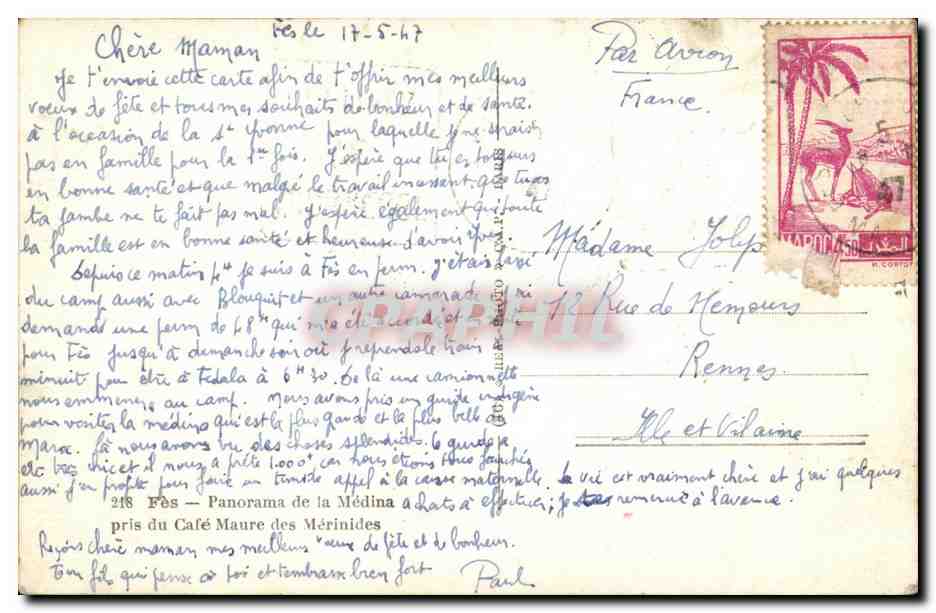 Fès le 17-5-47
Chère Maman
Je t'envoie cette carte afin de t'offrir mes meilleurs
voeux de fête et tous mes souhaits de bonheur et de santé
à l'occasion de la St Yvonne pour laquelle je ne serais
pas en famille pour la 1ère fois. J'espère que tu es toujours
en bonne santé et que malgré le travail incessant que tu as
ta jambe ne te fait pas mal. J'espère également que toute
la famille est en bonne santé et heureuse d'avoir Yves.
Depuis ce matin 4H je suis à Fès en perm. J'étais
du camp aussi avec Blouquit et un autre camarade j'ai
demandé une perm de 48H qui m'a été accordée et
pour Fès jusqu'à dimanche soir où je reprends le train
minuit pour être à Fedala à 6H30. De là une camionnette
nous emmènera au camp. Nous avons pris un guide indigène
pour visiter la médina qui est la plus grande et la plus belle du
Maroc. Là nous avons vu des choses splendides. Le guide a
été très chic et il nous a prêté 1.000F car nous étions tous fauchés
aussi j'en profite pour faire un timide appel à la caisse maternelle. La vie est vraiment chère et j'ai quelques
achats à effectuer; je te remercie à l'avance.
218 Fès — Panorama de la Médina
pris du Café Maure des Mérinides
Reçois chère maman mes meilleurs voeux de fête et de bonheur.
Ton fils qui pense à toi et t'embrasse bien fort
Paul
Par Avion
France
Madame Jolep
12 Rue de Nemours
Rennes
Ille et Vilaine
MAROC
المغرب
4F50
PARIS
CARPHIL